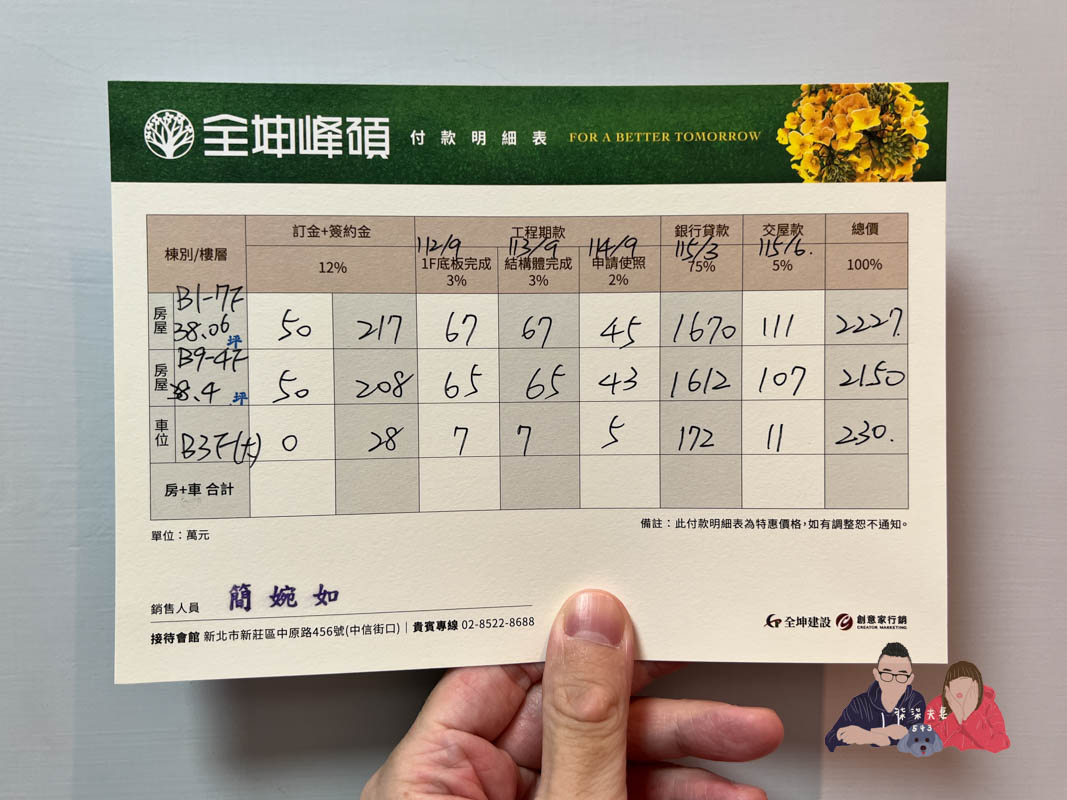 全坤峰碩 付款明細表 FOR A BETTER TOMORROW
棟別/樓層 訂金+簽約金 工程期款 銀行貸款 交屋款 總價
112/9 113/9 114/9 115/3 115/6.
12% 1F底板完成 3% 結構體完成 3% 申請使照 2% 75% 5% 100%
房屋 B1-7F 38.06坪 50 217 67 67 45 1670 111 2227.
房屋 B9-4F 38.4坪 50 208 65 65 43 1612 107 2150
車位 B3F(大) 0 28 7 7 5 172 11 230.
房+車 合計
單位:萬元
備註:此付款明細表為特惠價格,如有調整恕不通知。
銷售人員 簡婉如
接待會館 新北市新莊區中原路456號(中信街口)|貴賓專線 02-8522-8688
全坤建設 創意家行銷
CREATOR MARKETING
夫妻
543